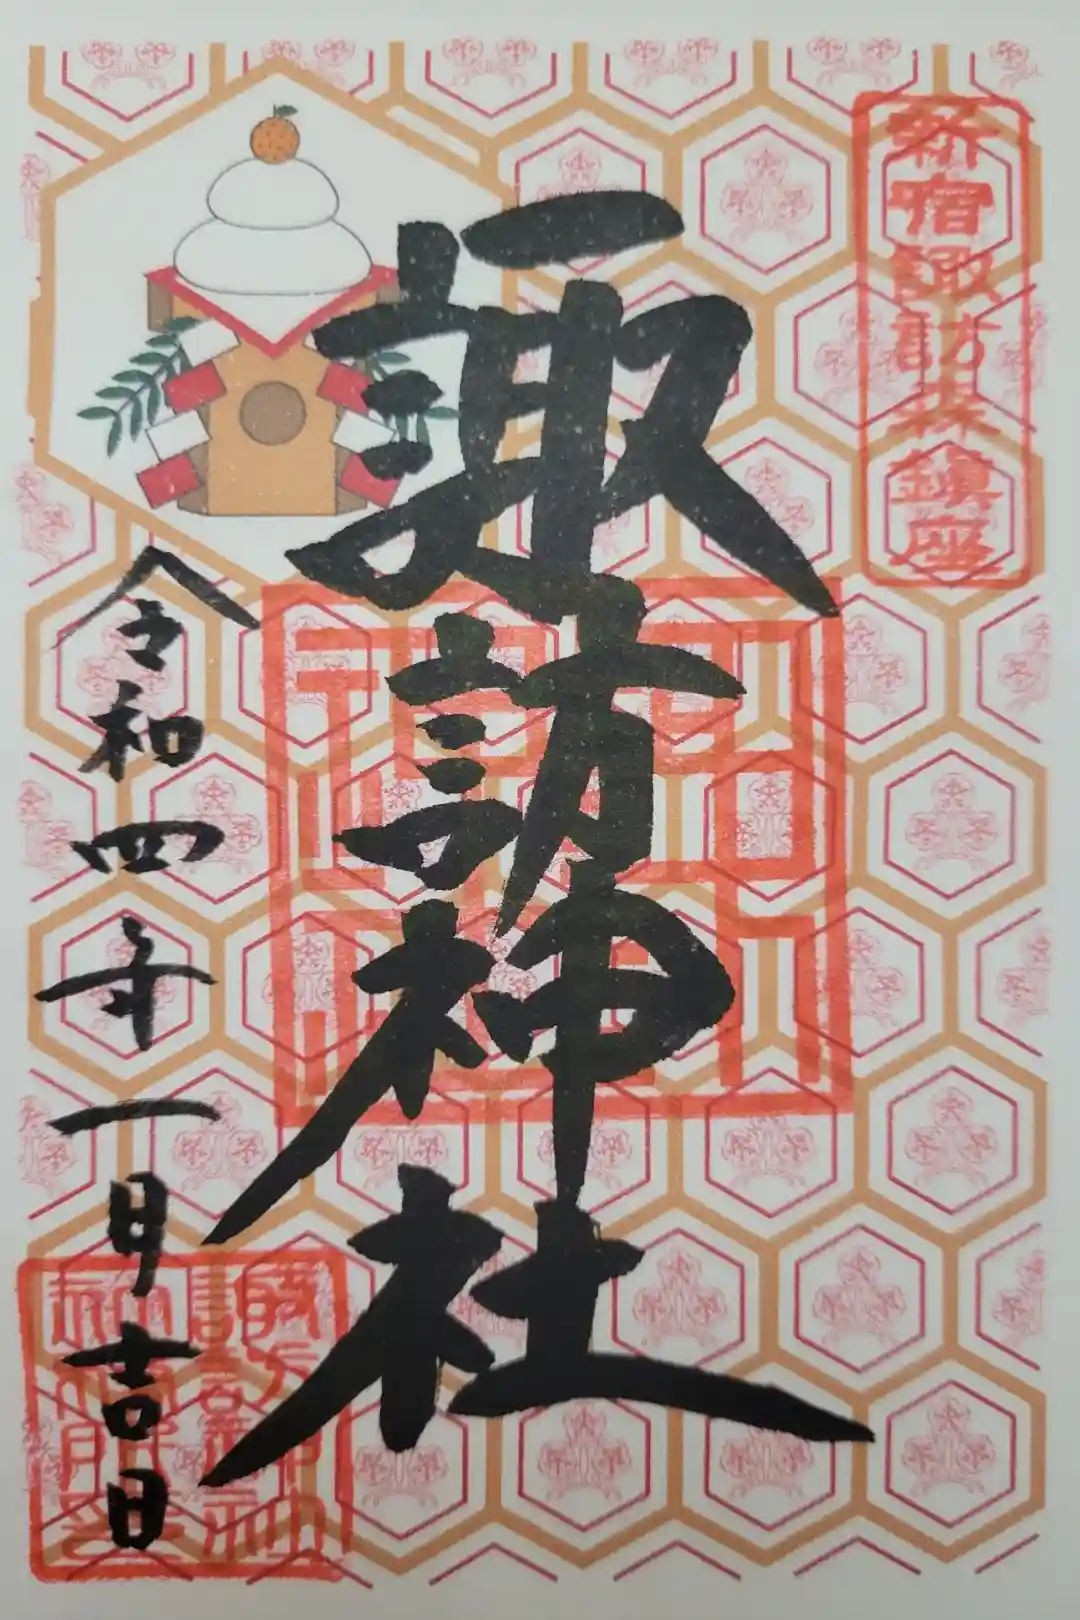 新宿諏訪森鎮座
諏訪神社
令和四年一月吉日